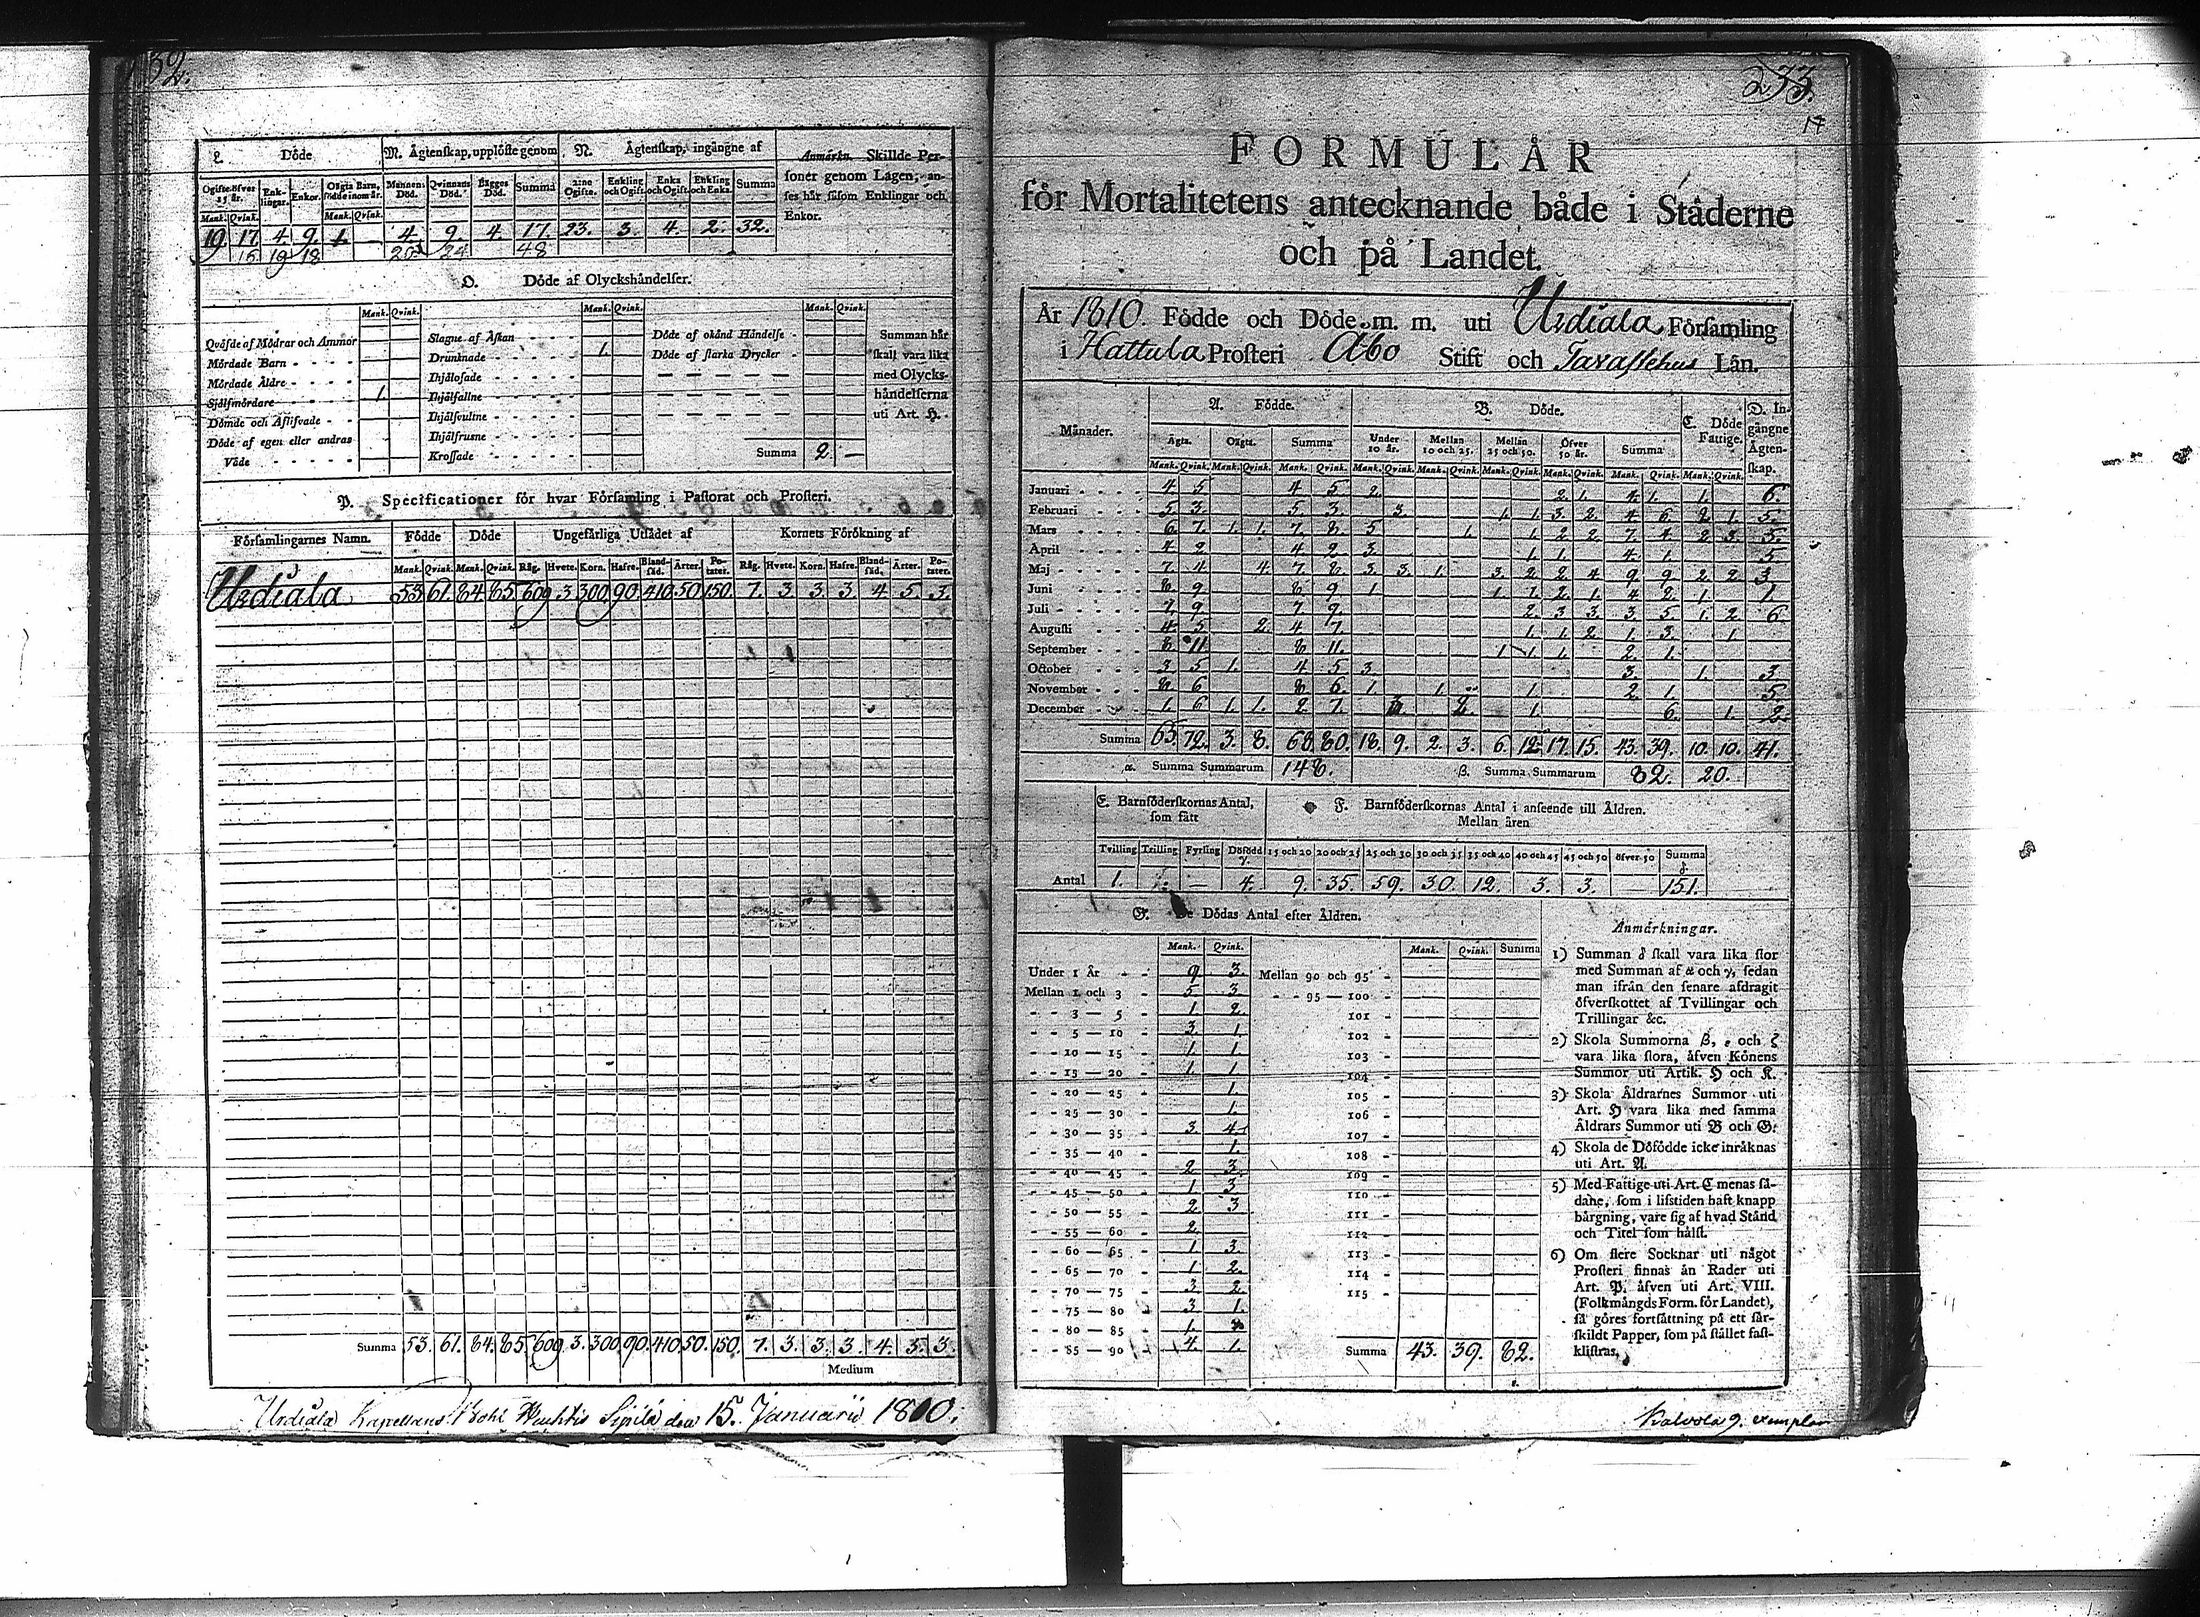 32.
L. Döde
M. Ägtenskap, upplöste genom
N. Ägtenskap, ingångne af
Anmärkn. Skillde Personer genom Lagen, anses här såsom Enklingar och Enkor.
Ogifte öfver 15 år. Enklingar. Enkor. Oägta Barn, födde inom år. Mannens Död. Qvinnans Död. Bägges Död. Summa 2:ne Ogifte. Enkling och Ogift. Enka och Ogift. Enkling och Enka. Summa
Mank. Qvink. Mank. Qvink.
19. 17. 4. 9. 1. — 4. 9. 4. 17. 23. 3. 4. 2. 32.
48
O. Döde af Olyckshändelser.
Mank. Qvink. Mank. Qvink. Mank. Qvink.
Qväfde af Mödrar och Ammor
Mördade Barn
Mördade Äldre
Sjelfmördare 1.
Dömde och Aflifvade
Döde af egen eller andras Våde
Slagne af Åskan
Drunknade 1.
Ihjälfrosade
Ihjälfallne
Ihjälsvultne
Ihjälfrusne
Krossade
Döde af okänd Händelse
Döde af starka Drycker
Summa 2. —
Summan här skall vara lika med Olyckshändelserna uti Art. H.
P. Specificationer för hvar Församling i Pastorat och Prosteri.
Församlingarnes Namn. Födde Döde Ungefärliga Utsädet af Kornets Förökning af
Mank. Qvink. Mank. Qvink. Råg. Hvete. Korn. Hafre. Blandsäd. Ärter. Potater. Råg. Hvete. Korn. Hafre. Blandsäd. Ärter. Potater.
Urdiala 53 61. 84. 85. 609 3 300 90. 410 50 150. 7. 3. 3. 3. 4. 5. 3.
Summa 53. 61. 84. 85. 609. 3. 300 90. 410 50. 150. 7. 3. 3. 3. 4. 5. 3.
Medium
Urdiala Kapellans den 15. Januarii 1810.
233.
17
FORMULÅR
för Mortalitetens antecknande både i Städerne
och på Landet.
År 1810. Födde och Döde m. m. uti Urdiala Församling
i Hattula Prosteri Åbo Stift och Tavastehus Län.
Månader.
A. Födde. B. Döde. C. Döde Fattige. D. Ingångne Ägtenskap.
Ägta. Oägta. Summa Under 10 år. Mellan 10 och 25. Mellan 25 och 50. Öfver 50 år. Summa
Mank. Qvink. Mank. Qvink. Mank. Qvink. Mank. Qvink. Mank. Qvink. Mank. Qvink. Mank. Qvink. Mank. Qvink. Mank. Qvink.
Januari 4 5 4 5 2. 2. 1. 4 1. 1. 6.
Februari 5 3. 5 3. 3. 1. 1. 3. 2. 4 6 2 1. 5.
Mars 6 7. 1. 1. 7. 8. 5 1. 1. 2 2. 7. 4. 2 3. 5.
April 4 2 4 2 3. 1. 1. 4 1. 5.
Maj 7. 4 4. 7. 8. 3. 3. 1. 3. 2. 2. 4 9. 9. 2. 2. 3.
Juni 8. 9. 8 9 1 1. 1. 2. 1. 4 2. 1. 1
Juli 7. 9. 7. 9. 2. 3 3. 3. 5. 1. 2. 6.
Augusti 4. 5 2. 4 7. 1. 1. 2. 1. 3. 1.
September 8 11. 8 11. 1. 1. 1. 2. 1.
October 3 5 1. 4 5 3. 3. 1. 3.
November 8 6 8 6. 1. 1. 1. 2. 1. 5.
December 1. 6 1. 1. 2. 7. 3. 2. 1. 6. 1. 2.
Summa 65. 72. 3. 8. 68. 80. 18. 9. 2. 3. 6. 12. 17. 15. 43. 39. 10. 10. 41.
α. Summa Summarum 148. β. Summa Summarum 82. 20.
E. Barnföderskornas Antal, som fått
F. Barnföderskornas Antal i anseende till Åldren. Mellan åren
Tvilling Trilling Fyrling Döfödd γ. 15 och 20 20 och 25 25 och 30 30 och 35 35 och 40 40 och 45 45 och 50 öfver 50 Summa δ
Antal 1. — 4. 9. 35. 59. 30. 12. 3. 3. 151.
G. De Dödas Antal efter Åldren.
Mank. Qvink. Mank. Qvink. Summa
Under 1 År 9. 3. Mellan 90 och 95
Mellan 1 och 3 5 3 95 — 100
3 — 5 1. 2. 101
5 — 10 3. 1. 102
10 — 15 1. 1. 103
15 — 20 1. 1. 104
20 — 25 1. 105
25 — 30 1. 106
30 — 35 3. 4. 107
35 — 40 1. 108
40 — 45 2 3. 109
45 — 50 1 3 110
50 — 55 2 3 111
55 — 60 2 112
60 — 65 1 3. 113
65 — 70 1 2. 114
70 — 75 3. 2. 115
75 — 80 3 1.
80 — 85 1.
85 — 90 4. 1. Summa 43. 39. 82.
Anmärkningar.
1) Summan δ skall vara lika stor
med Summan af α och γ, sedan
man ifrån den senare afdragit
öfverskottet af Tvillingar och
Trillingar &c.
2) Skola Summorna β, ε och ζ
vara lika stora, äfven Könens
Summor uti Artik. H och K.
3) Skola Åldrarnes Summor uti
Art. H vara lika med samma
Åldrars Summor uti B och G.
4) Skola de Döfödde icke inräknas
uti Art. A.
5) Med Fattige uti Art. C menas sådane,
som i lifstiden haft knapp
bärgning, vare sig af hvad Stånd
och Titel som hälst.
6) Om flere Socknar uti något
Prosteri finnas än Rader uti
Art. P, äfven uti Art. VIII.
(Folkmängds Form. för Landet),
så göres fortsättning på ett särskildt
Papper, som på stället fastklistras.
Kalvola 9. exemplar